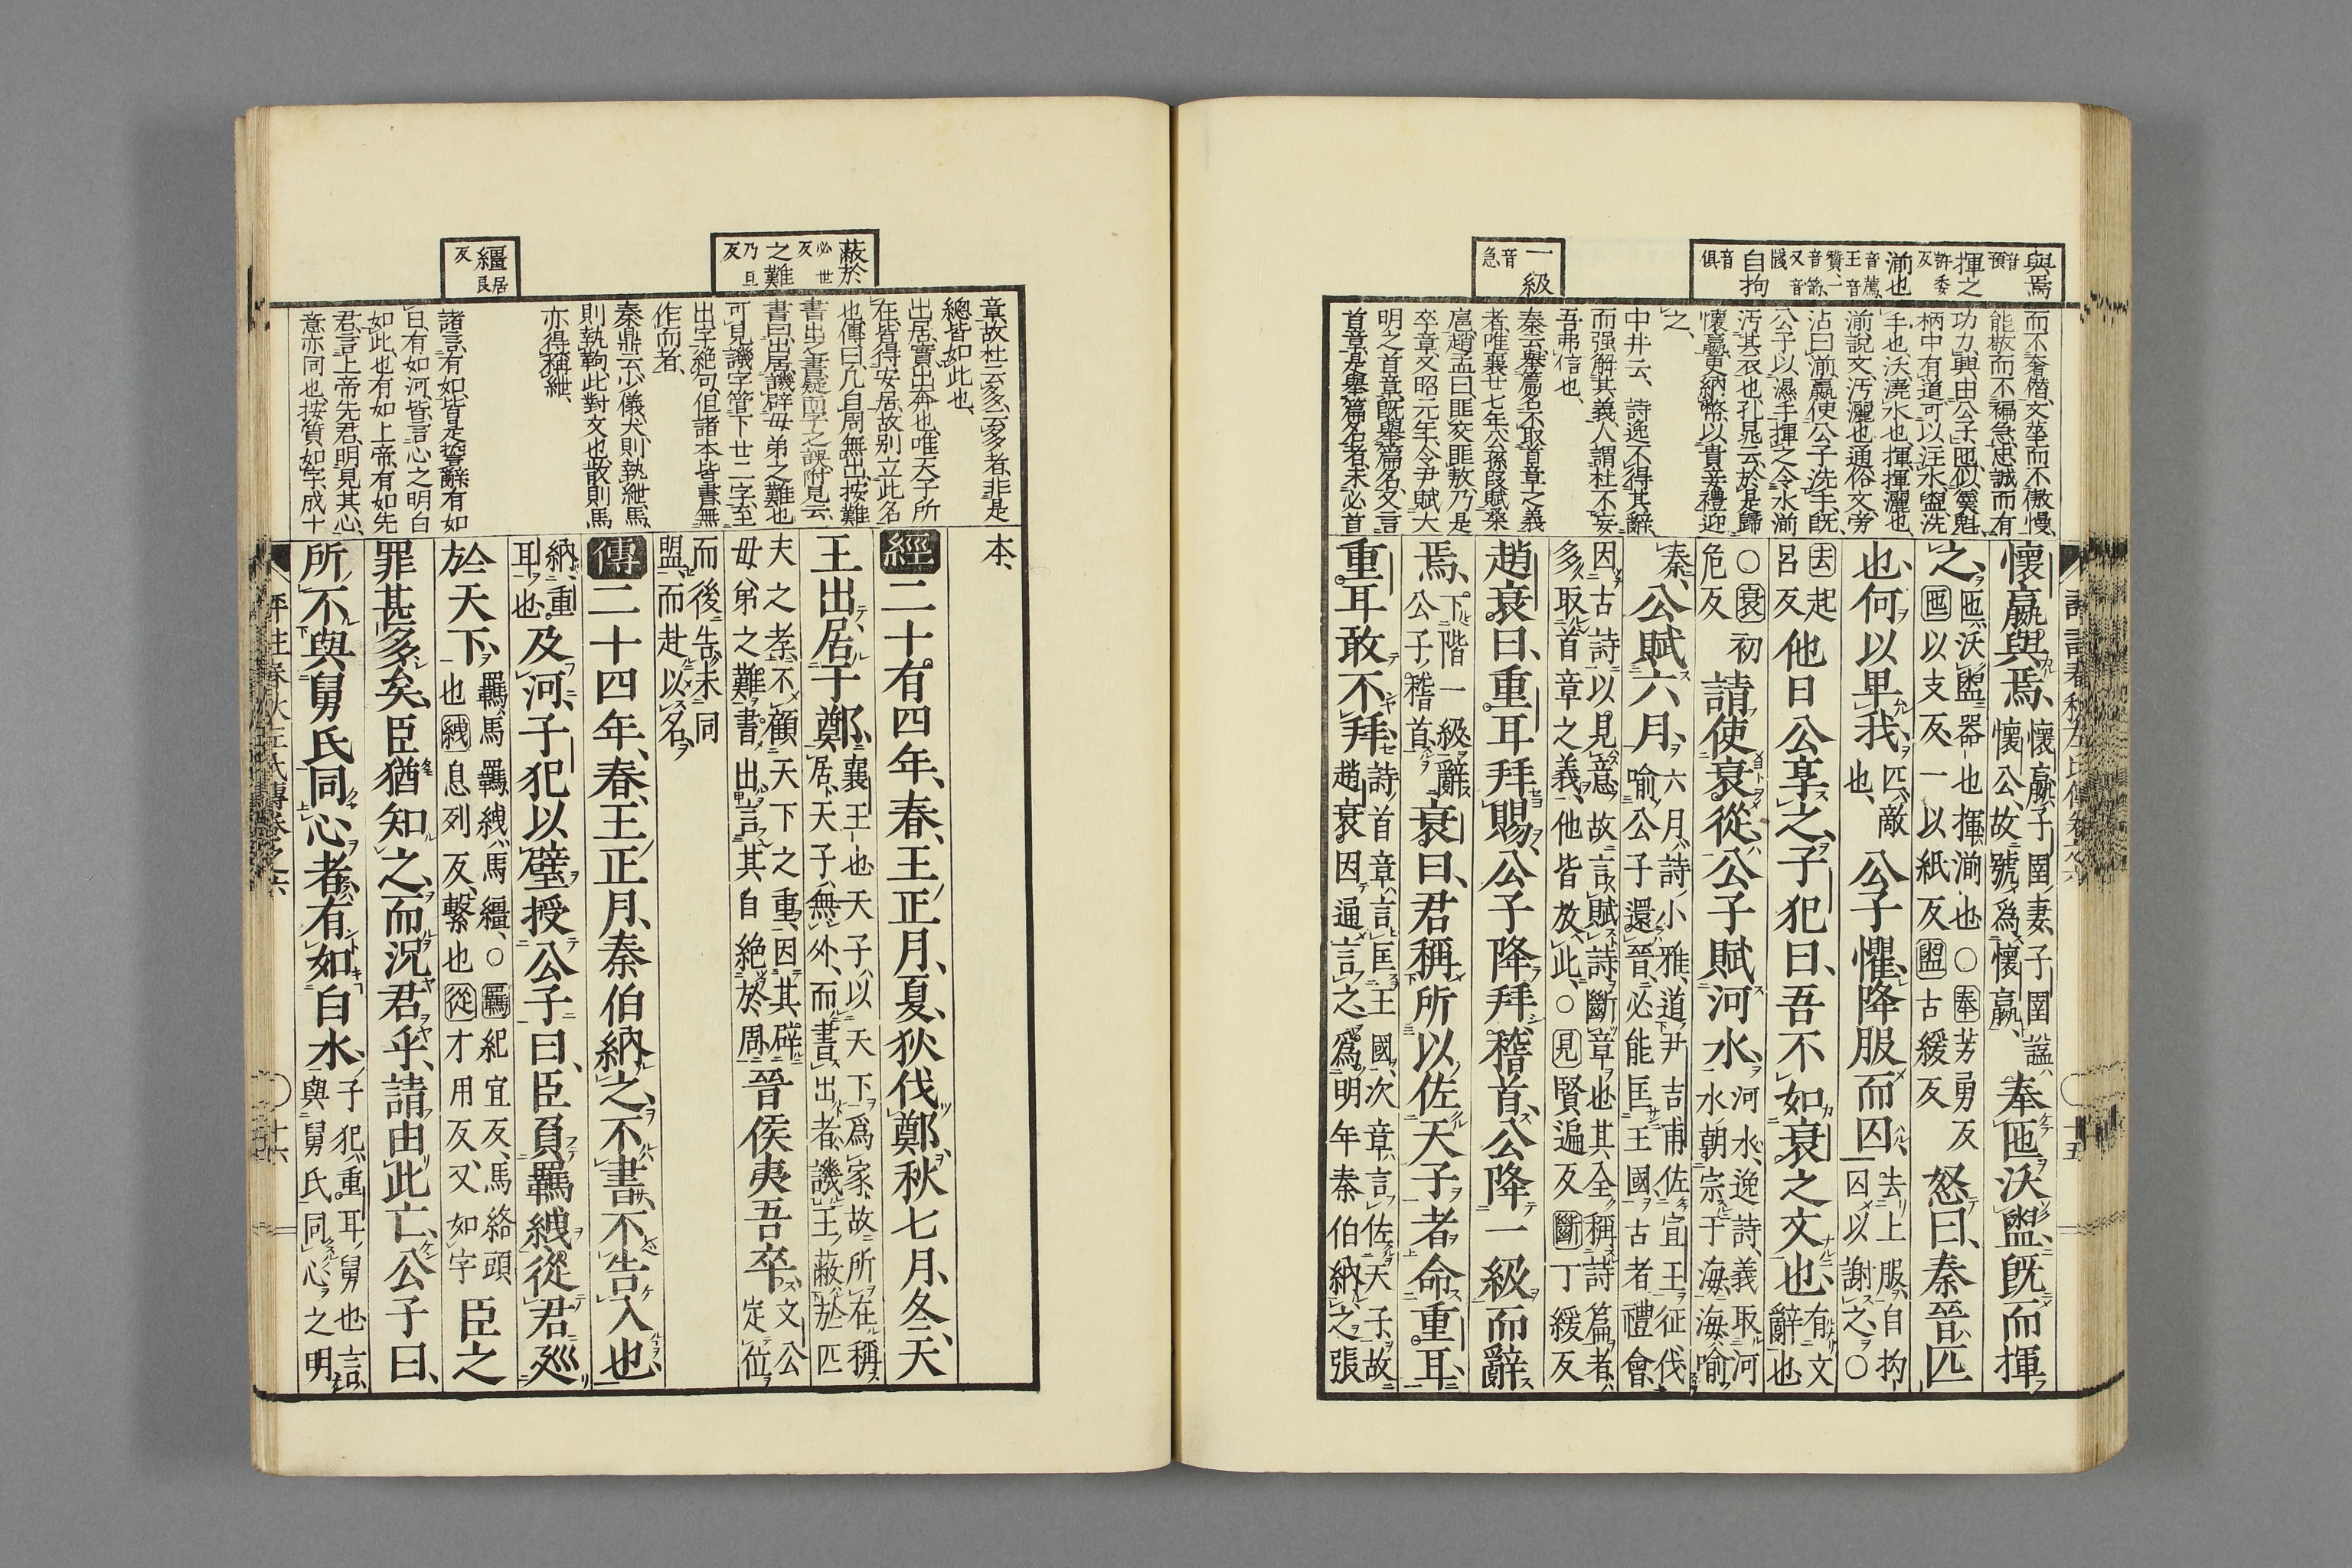 與焉
音預
揮之
許委反
湔也
音薦、一音贊、王音音箭、又音牋
自拘
音俱
一級
音急
而不奢僭、文華而不傲慢、
能敬而不褊急、忠誠而有
功力、與由公子、匜似羹魁、
柄中有道、可以注水、盥、洗
手也、沃、澆水也、揮、揮灑也、
湔說文汚灑也、通俗文、旁
沾曰湔、嬴使公子洗手、既、
公子以濕手揮之、令水湔
汚其衣也、孔晁云、於是歸
懷嬴、更納幣、以貴妾禮迎
之、
中井云、詩逸、不得其辭、
而强解其義、人謂杜不妄、
吾弗信也、
秦云、舉篇名、不取首章之義
者、唯襄廿七年、公孫段賦桑
扈、趙孟曰、匪交匪敖、乃是
卒章、又昭元年、令尹賦大
明之首章、旣舉篇名、又言
首章、是舉篇名者、未必首
懷嬴與焉、
懷嬴、子圉妻、子圉謚
懷公、故號爲懷嬴、
奉匜沃盥、旣而揮
之、
匜、沃盥器也、揮、湔也○奉芳勇反
匜以支反、一以紙反盥古緩反
怒曰、秦晉匹
也、何以卑我、
匹、敵
也、
公子懼、降服而囚、
去上服、自拘
囚以謝之、○
去起呂反
他日公享之、子犯曰、吾不如衰之文也、
有文
辭也
○衰初
危反
請使衰從、公子賦河水、
河水、逸詩、義取河
水朝宗于海、海喻
秦、
公賦六月、
六月、詩小雅、道尹吉甫佐宣王征伐、
喻公子還晉、必能匡王國、古者禮會、
因古詩以見意、故言賦詩斷章也、其全稱詩篇者、
多取首章之義、他皆放此、○見賢遍反斷丁緩反
趙衰曰、重耳拜賜、公子降拜稽首、公降一級而辭
焉、
下階一級、辭
公子稽首、
衰曰、君稱所以佐天子者命重耳、
重耳敢不拜、
詩首章、言匡王國、次章、言佐天子、故
趙衰因通言之、爲明年秦伯納之張
十五
蔽於
必世反
之難
乃旦反
繮
居良反
章、故杜云多、云多者、非是
總皆如此也、
出居、實出奔也、唯天子所
在、皆得安居、故別立此名
也、傳曰、凡自周無出、按難
書出之書、疑而字之誤、附見云、
書曰出居、譏辟母弟之難也、
可見譏字管下廿二字、至
出字絕句、但諸本皆書、無
作而者、
秦鼎云、少儀、犬則執紲、馬
則執靮、此對文也、散則馬
亦得稱紲、
諸言有如、皆是誓辭、有如
日、有如河、皆言心之明白
如此也、有如上帝、有如先
君、言上帝先君、明見其心、
意亦同也、按質、如字、成十
本、
經二十有四年、春、王正月、夏、狄伐鄭、秋七月、冬、天
王出居于鄭、
襄王也、天子以天下爲家、故所在稱
居、天子無外、而書出者、譏王蔽於匹
夫之孝、不顧天下之重、因其辟
母弟之難、書出、言其自絕於周、
晉侯夷吾卒、
文公
定位
而後告、未同
盟、而赴以名、
傳二十四年、春、王正月、秦伯納之、不書、不告入也、
納重
耳也、
及河、子犯以璧授公子曰、臣負羈紲、從君廵
於天下、
羈、馬羈、紲、馬繮、○羈紀宜反、馬絡頭
也紲息列反、繫也從才用反、又如字
臣之
罪甚多矣、臣猶知之、而況君乎、請由此亡、公子曰、
所不與舅氏同心者、有如白水、
子犯、重耳舅也、言
與舅氏同心之明、
評註春秋左氏傳卷之六
十六